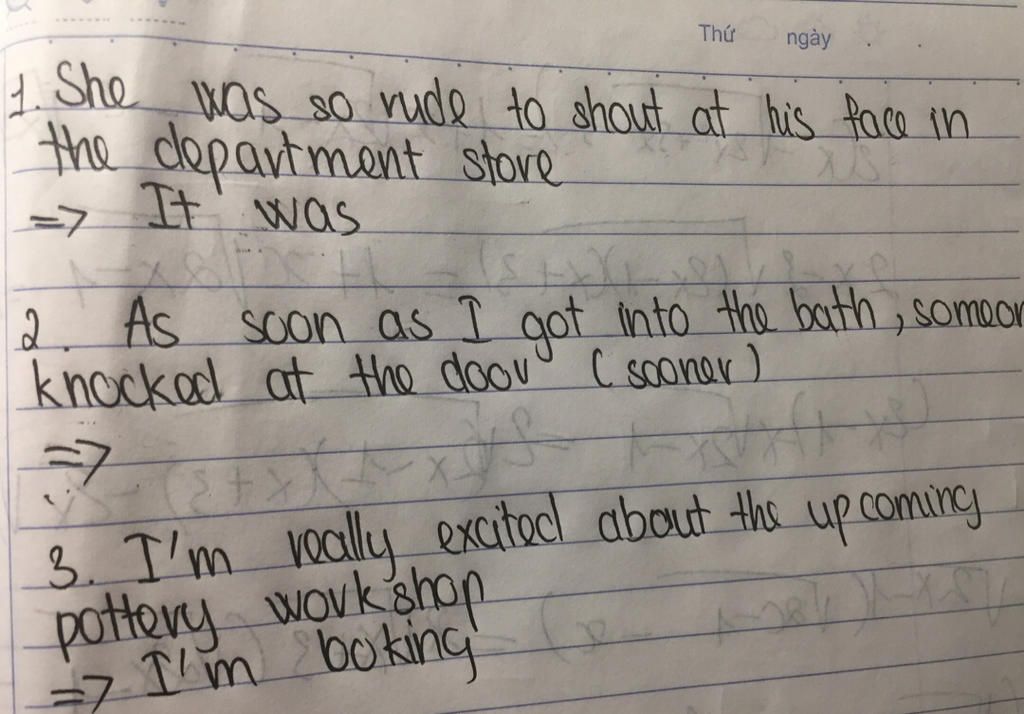 Thứ ngày
1. She was so rude to shout at his face in
the department store
=> It was
2. As soon as I got into the bath, someon
knocked at the door (sooner)
=>
3. I'm really excited about the upcoming
pottery workshop
=> I'm looking